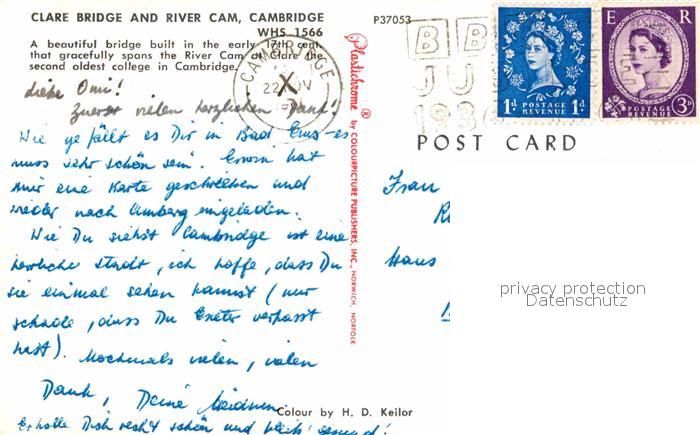 CLARE BRIDGE AND RIVER CAM, CAMBRIDGE
WHS 1566
A beautiful bridge built in the early 17th cent.
that gracefully spans the River Cam at Clare the
second oldest college in Cambridge.
P37053
CAMBRIDGE
22 NOV
BB
JU
193
1d POSTAGE REVENUE 1d
E R
POSTAGE REVENUE 3D
POST CARD
Plastichrome ® by COLOURPICTURE PUBLISHERS, INC., NORWICH, NORFOLK
Liebe Omi!
Zuerst vielen herzlichen Dank!
Wie gefällt es Dir in Bad Ems - es
muss sehr schön sein. Erwin hat
mir eine Karte geschrieben und
wieder nach Amberg eingeladen.
Wie Du siehst Cambridge ist eine
herrliche Stadt, ich hoffe, dass Du
sie einmal sehen kannst (nur
schade, dass Du Exeter verpasst
hast). Nochmals vielen, vielen
Dank, Deine
Erhole Dich recht schön und bleib' gesund!
Frau
Haus
privacy protection
Datenschutz
Colour by H. D. Keilor